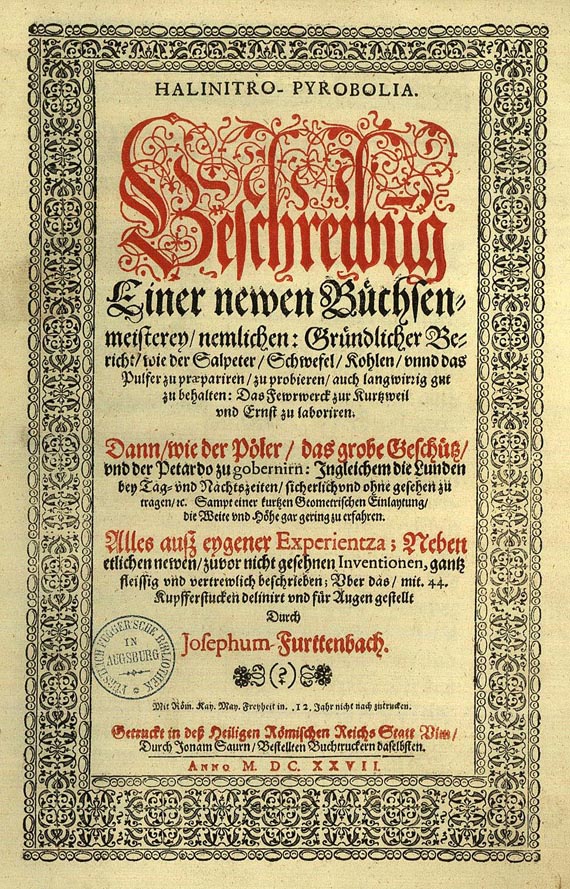 HALINITRO- PYROBOLIA.
Beschreibūg
Einer newen Büchsen-
meisterey/ nemlichen: Gründlicher Be-
richt/ wie der Salpeter/ Schwefel/ Kohlen/ vnnd das
Pulfer zu præpariren/ zu probieren/ auch langwirzig gut
zu behalten: Das Fewrwerck zur Kurtzweil
vnd Ernst zu laboriren.
Dann/ wie der Pöler/ das grobe Geschütz/
vnd der Petardo zu gobernirn: Ingleichem die Lunden
bey Tag- vnd Nachtszeiten/ sicherlich vnd ohne gesehen zu
tragen/ ꝛc. Sampt einer kurtzen Geometrischen Einlaytung/
die Weite vnd Höhe gar gering zu erfahren.
Alles ausz eygener Experientza; Neben
etlichen newen/ zuvor nicht gesehnen Inventionen, gantz
fleissig vnd vertrewlich beschrieben; Vber das/ mit. 44.
Kupfferstucken delinirt vnd für Augen gestellt
Durch
Josephum Furttenbach.
(?)
FÜRSTLICH FUGGER'SCHE BIBLIOTHEK
IN
AUGSBURG
Mit Röm. Kay. May. Freyheit in. 12. Jahr nicht nach zutrucken.
Getruckt in deß Heiligen Römischen Reichs Statt Vlm/
Durch Jonam Saurn/ Bestellten Buchtruckern daselbsten.
ANNO M. DC. XXVII.